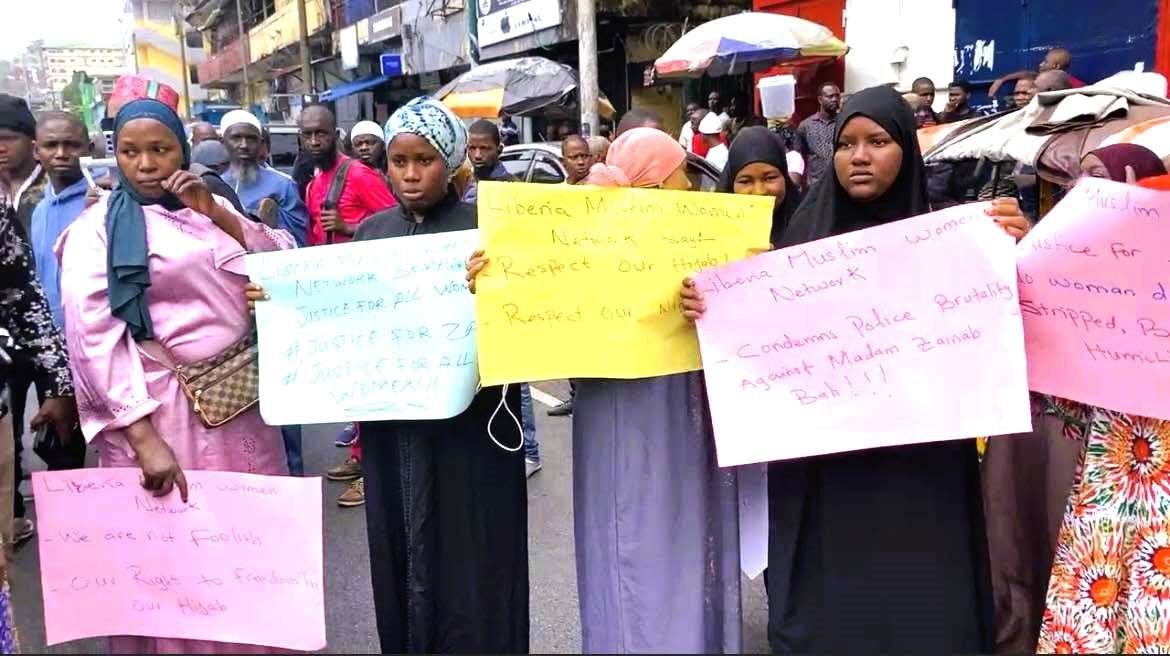 SAMSUNG
Liberia Women
Network
- We are not foolish
- Our Right to Freedom In
Our Hijab
NETWORK
JUSTICE FOR ALL WOM
# JUSTICE FOR
# JUSTICE FOR ALL
WOMEN!!!
Liberia Muslim Women
Network says
- Respect Our Hijab!
- Respect Our
Liberia Muslim Women
Network
- Condemns Police Brutality
Against Madam Zainab
Bah!!!
Muslim
Justice for
No woman d
Stripped, B
Humili